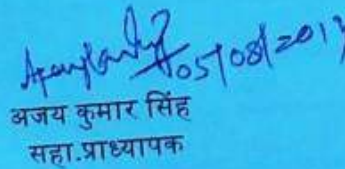 05/08/2017
अजय कुमार सिंह
सहा.प्राध्यापक